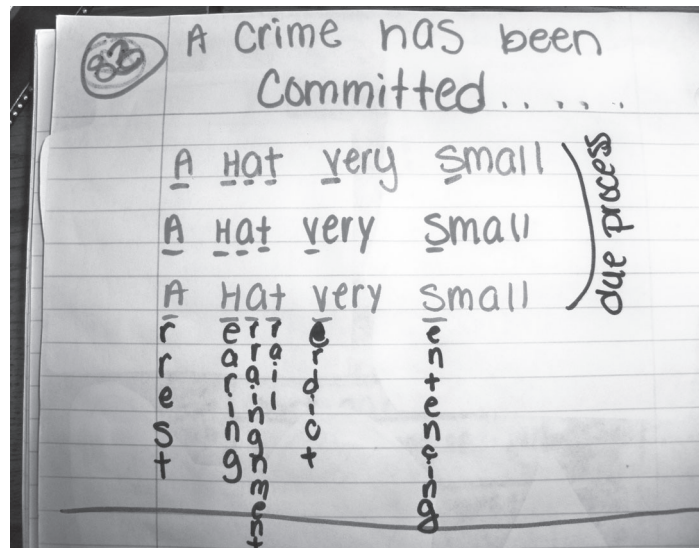 A crime has been
Committed......
A Hat very Small
A Hat very Small
A Hat very Small
due process
Arrest
Hearing
arraingnment
trail
verdict
Sentencing